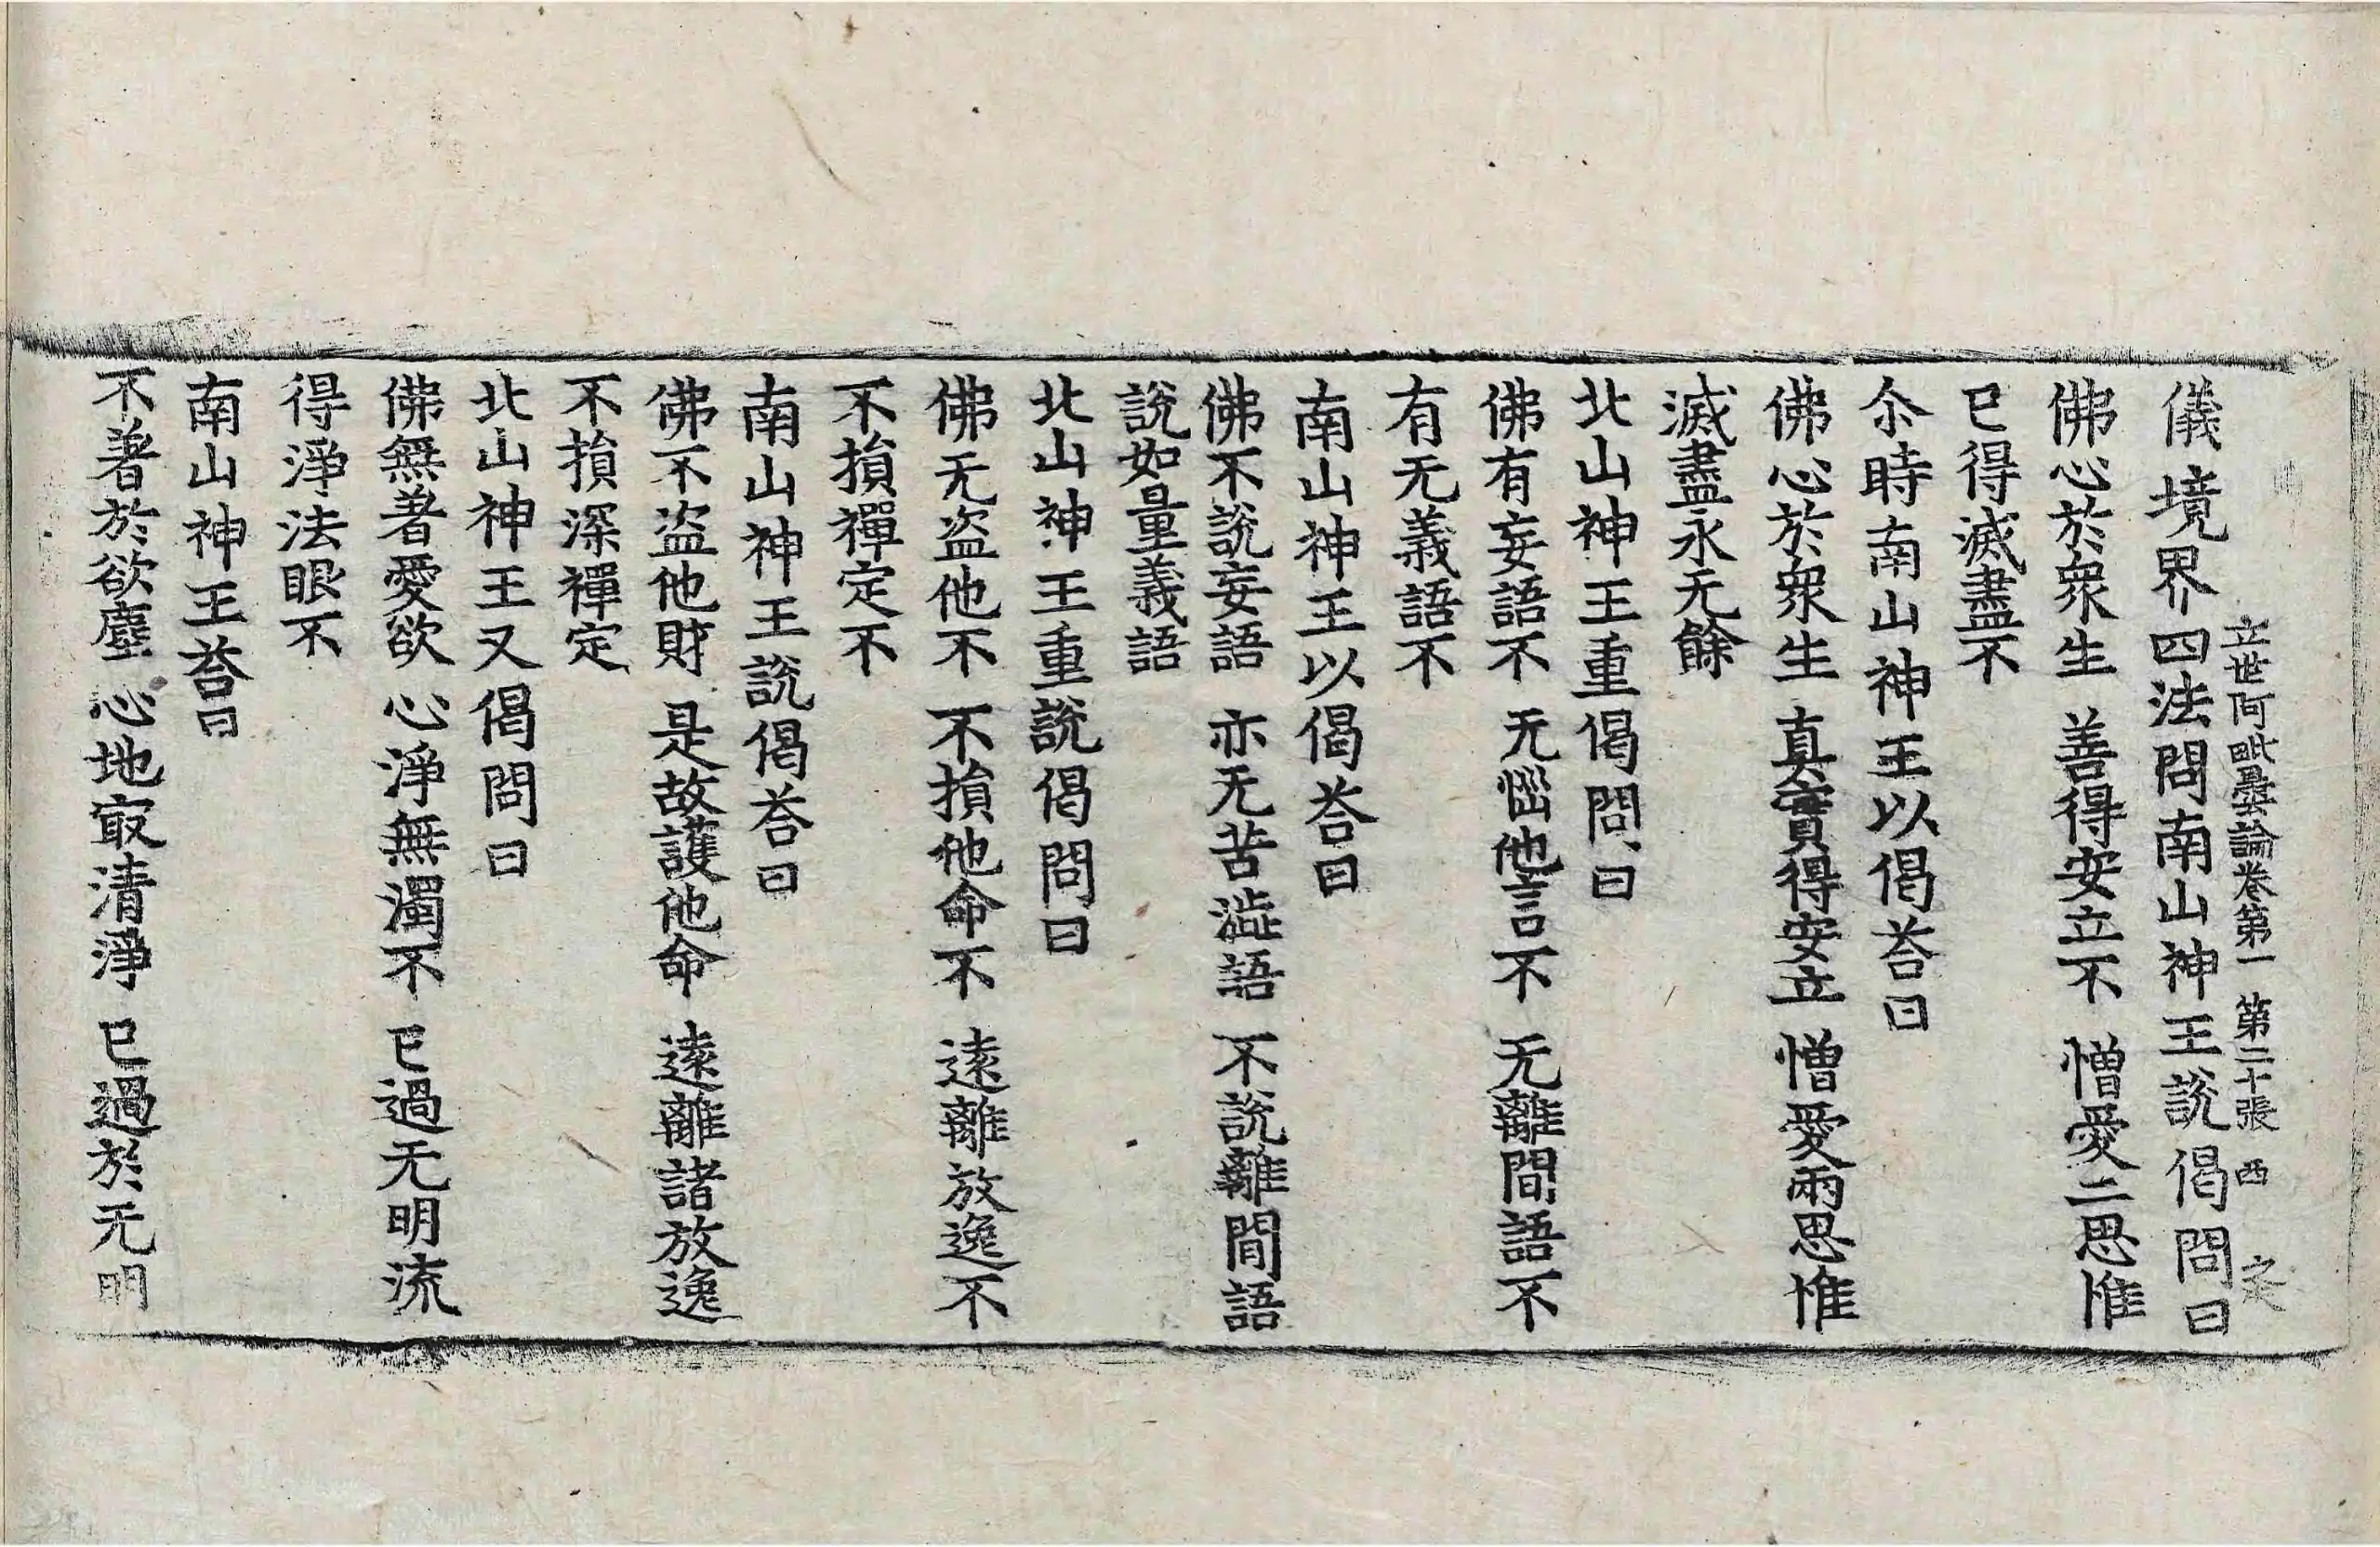 立世阿毗曇論卷第一 第二十張 西
儀境界四法問南山神王說偈問曰
佛心於衆生 善得安立不 憎愛二思惟
已得滅盡不
尒時南山神王以偈荅曰
佛心於衆生 真實得安立 憎愛兩思惟
滅盡永无餘
北山神王重偈問曰
佛有妄語不 无惱他言不 无離間語不
有无義語不
南山神王以偈荅曰
佛不說妄語 亦无苦澁語 不說離間語
說如量義語
北山神王重說偈問曰
佛无盜他不 不損他命不 遠離放逸不
不損禪定不
南山神王說偈荅曰
佛不盜他財 是故護他命 遠離諸放逸
不損深禪定
北山神王又偈問曰
佛無著愛欲 心淨無濁不 已過无明流
得淨法眼不
南山神王荅曰
不著於欲塵 心地㝡清淨 已過於无明